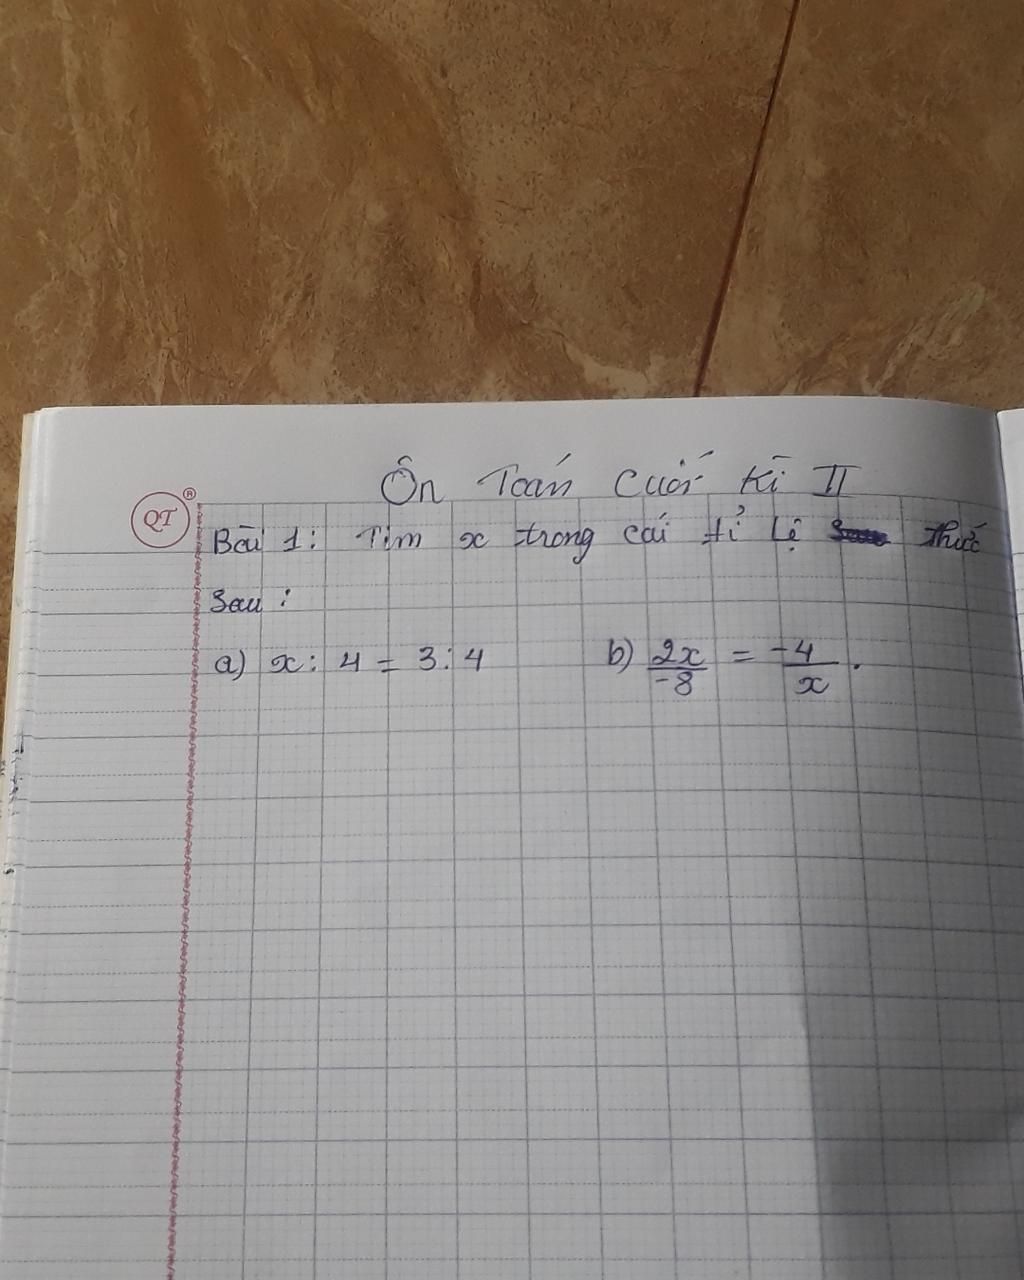 Ôn Toán Cuối Kì II
QT ®
Bài 1: Tìm x trong cái tỉ lệ thức
Sau:
a) x: 4 = 3:4 b) 2x/-8 = -4/x.